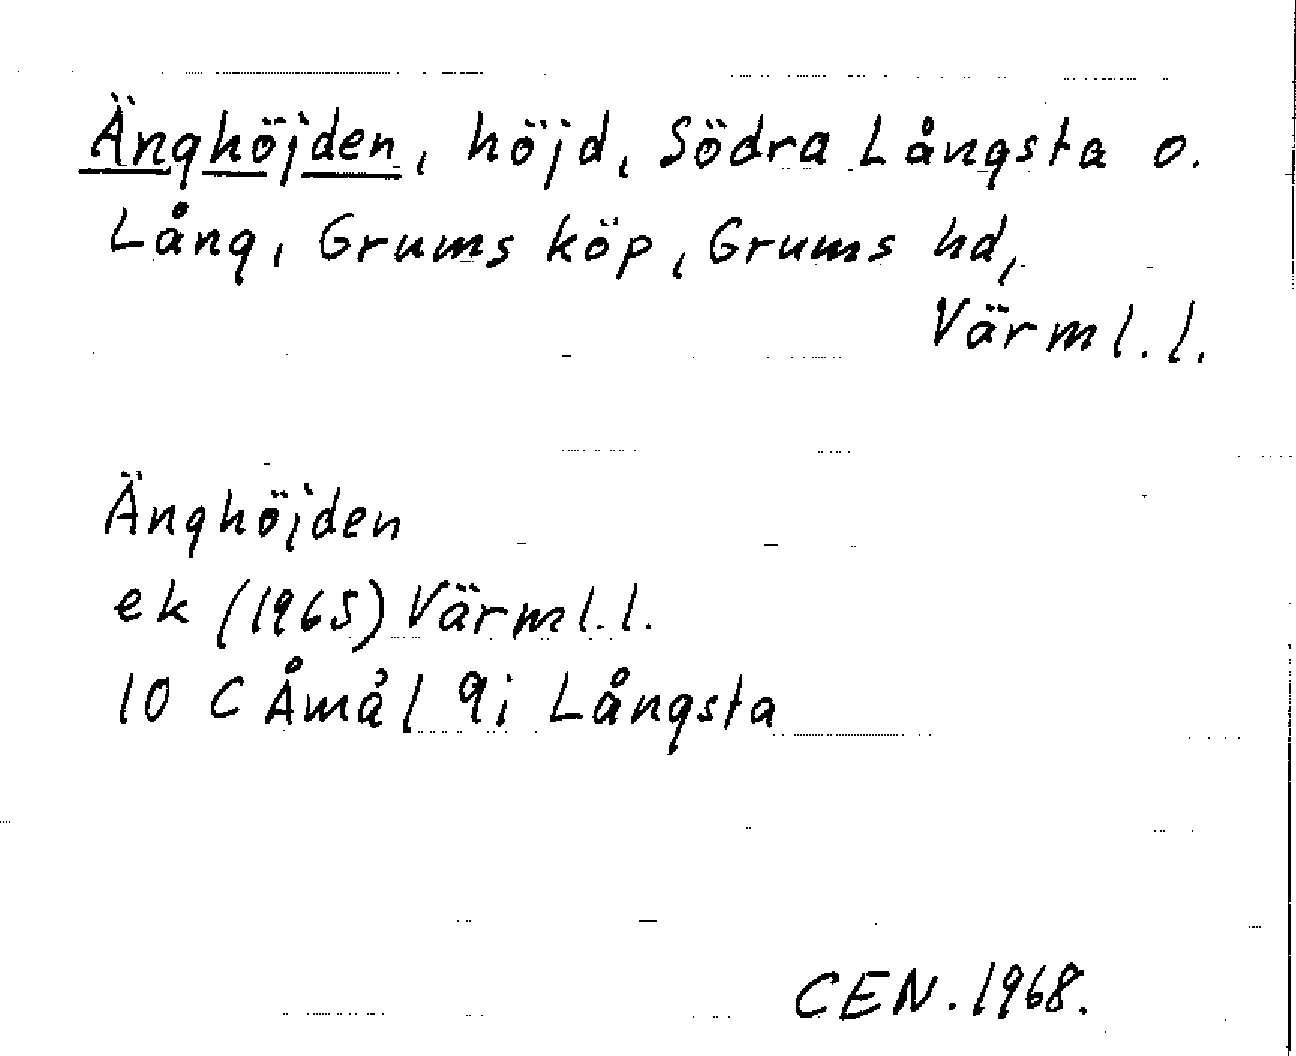 Änghöjden, höjd, Södra Långsta o.
Lång, Grums köp, Grums hd,
Värml.l.
Änghöjden
ek (1965) Värml.l.
10 C Åmål 9i Långsta
CEN. 1968.